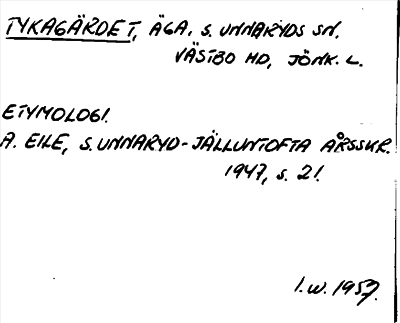 TYKAGÄRDET, ÄGA. S. UNNARYDS SN.
VÄSTBO HD, JÖNK. L.
ETYMOLOGI.
A. EILE, S. UNNARYD-JÄLLUNTOFTA ÅRSSKR.
1947, s. 21.
I.W. 1957.